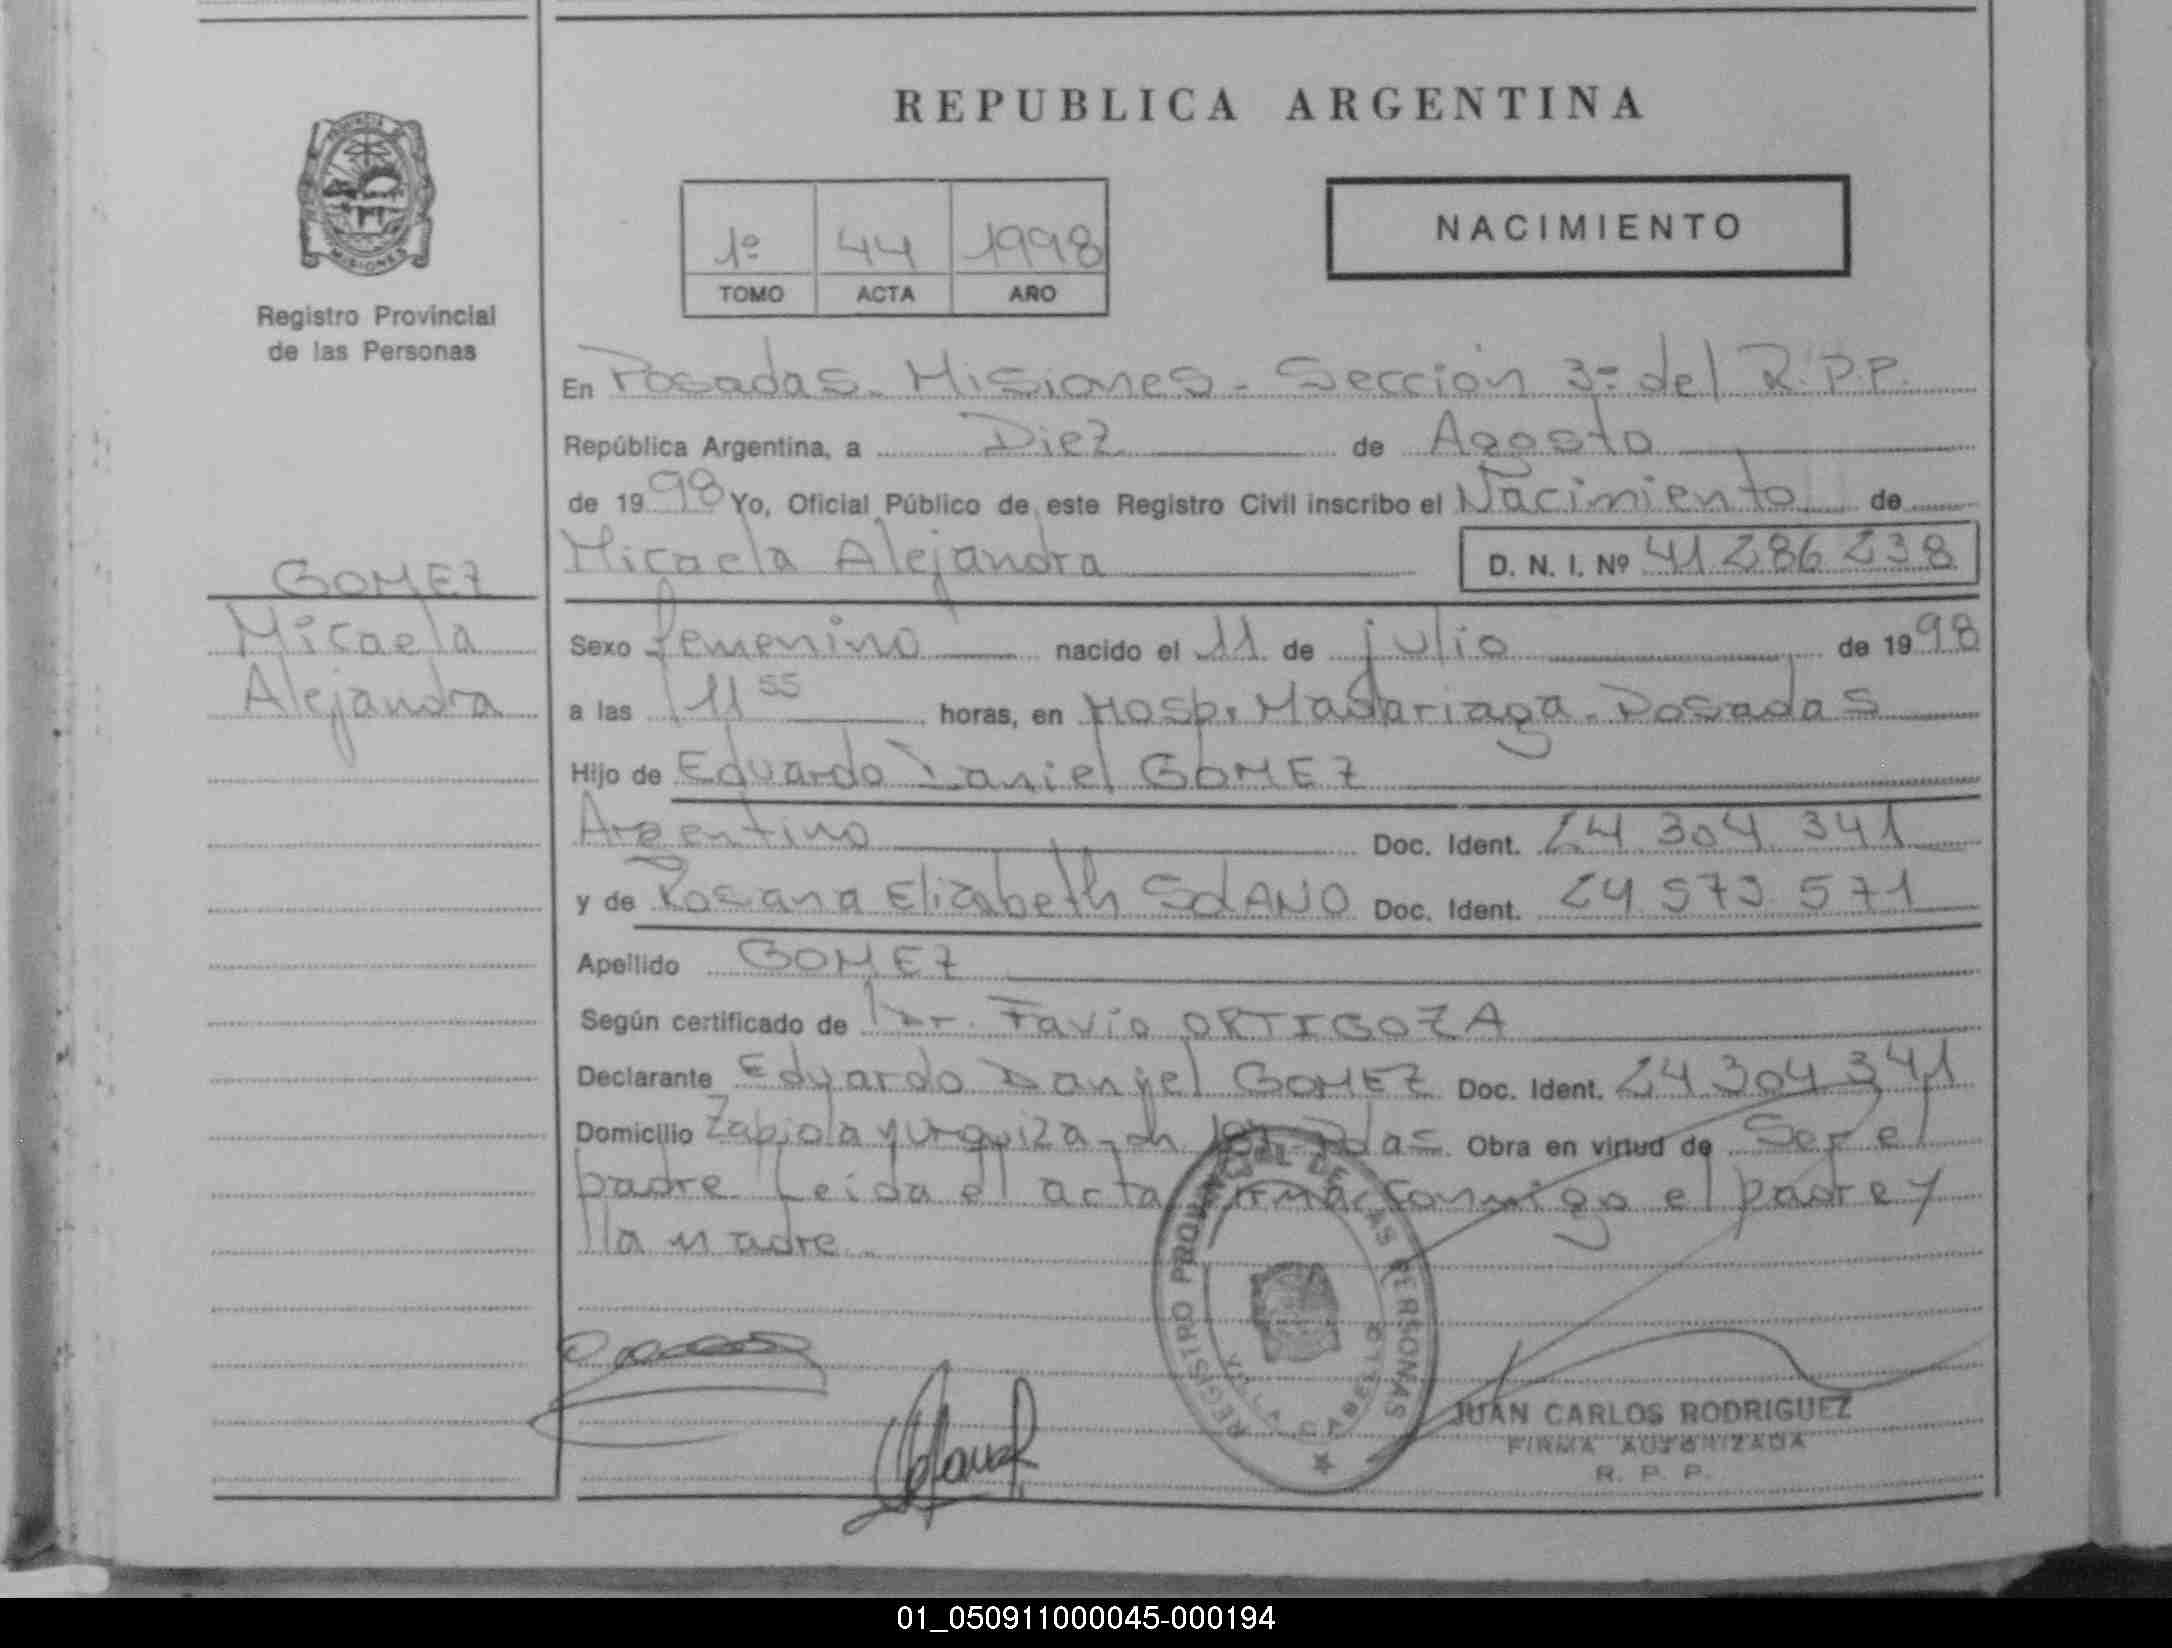 REPUBLICA ARGENTINA
PROVINCIA DE MISIONES
Registro Provincial
de las Personas
1º 44 1998
TOMO ACTA AÑO
NACIMIENTO
En Posadas - Misiones - Sección 3º del R.P.P.
República Argentina, a Diez de Agosto
de 1998 Yo, Oficial Público de este Registro Civil inscribo el Nacimiento de
Micaela Alejandra D. N. I. Nº 41 286 238
GOMEZ
Micaela
Alejandra
Sexo femenino nacido el 11 de julio de 1998
a las 11 55 horas, en Hosp. Madariaga - Posadas
Hijo de Eduardo Daniel GOMEZ
Argentino Doc. Ident. 24 304 341
y de Rosana Elizabeth SOLANO Doc. Ident. 24 573 571
Apellido GOMEZ
Según certificado de Dr. Favio ORTIGOZA
Declarante Eduardo Daniel GOMEZ Doc. Ident. 24 304 341
Domicilio Zapiola y Urquiza Pdas. Obra en virtud de Ser el
padre Leida el acta firman conmigo el padre y
la madre.
REGISTRO PROVINCIAL DE LAS PERSONAS
VILLA CABELLO
JUAN CARLOS RODRIGUEZ
FIRMA AUTORIZADA
R. P. P.
01_050911000045-000194